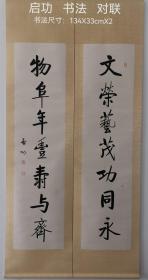 启功 书法 对联
书法尺寸：134X33cmX2
文榮藝茂功同永
物阜年豐壽与齊
启功